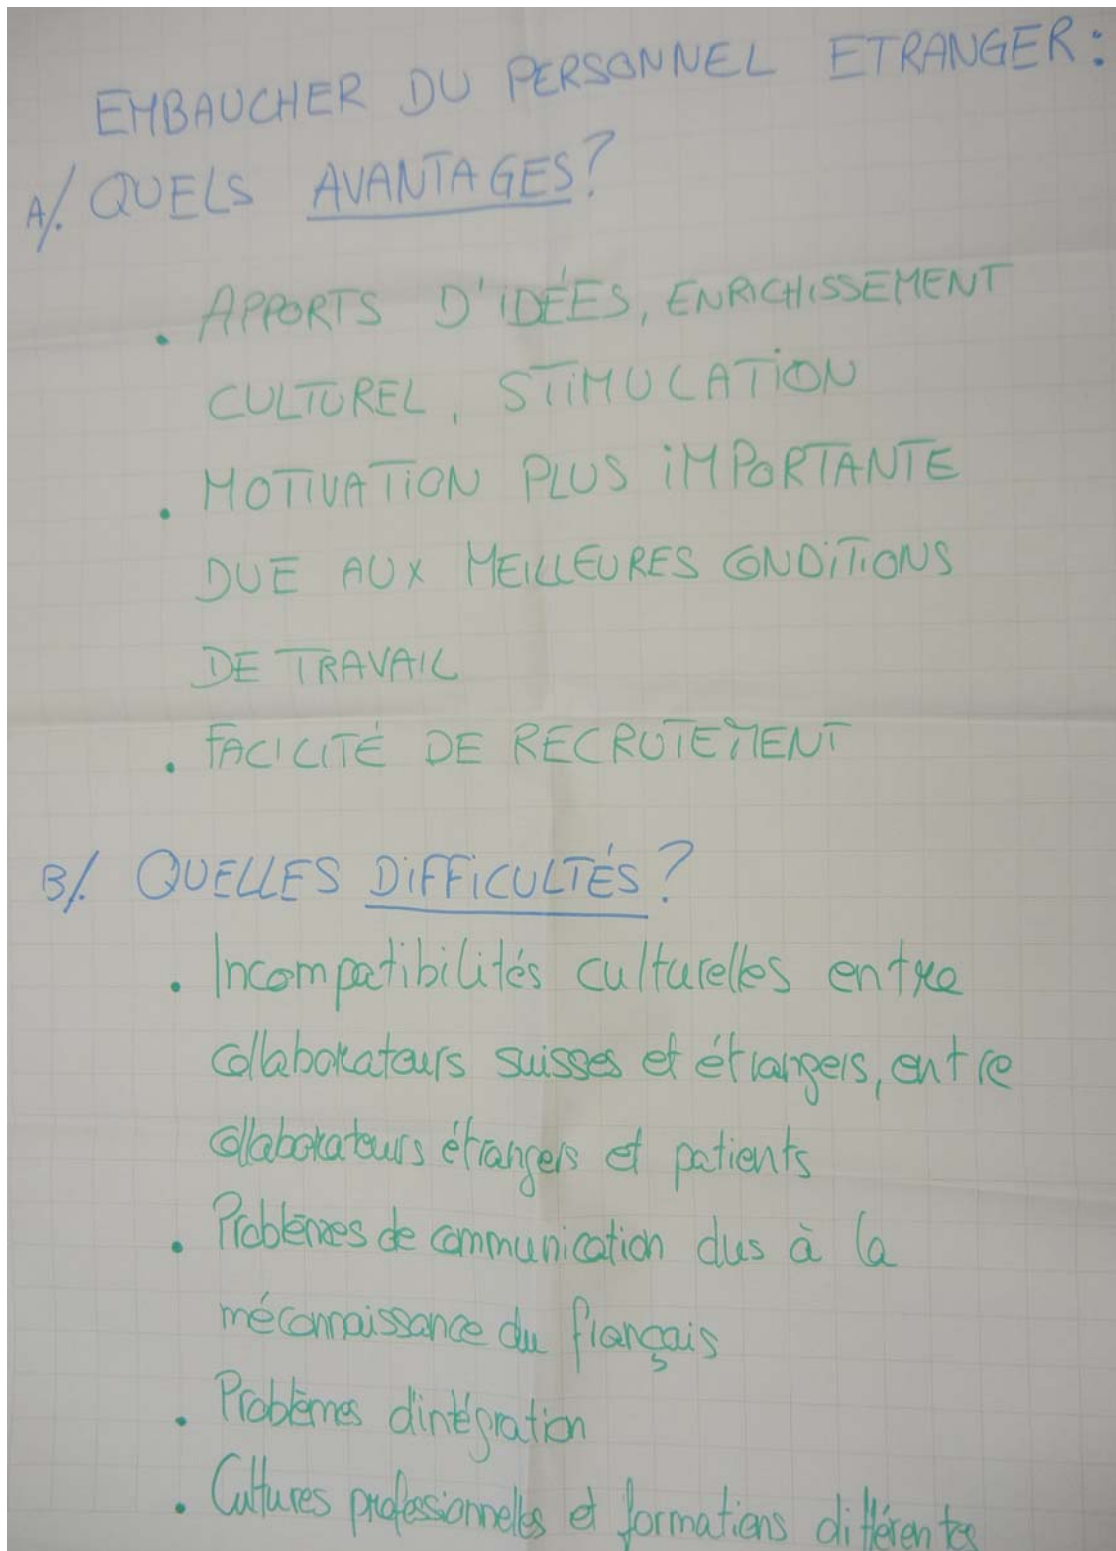 EMBAUCHER DU PERSONNEL ETRANGER :
A/. QUELS AVANTAGES ?
. APPORTS D'IDÉES, ENRICHISSEMENT
CULTUREL, STIMULATION
. MOTIVATION PLUS IMPORTANTE
DUE AUX MEILLEURES CONDITIONS
DE TRAVAIL
. FACILITÉ DE RECRUTEMENT
B/. QUELLES DIFFICULTÉS ?
. Incompatibilités culturelles entre
collaborateurs suisses et étrangers, entre
collaborateurs étrangers et patients
. Problèmes de communication dus à la
méconnaissance du français
. Problèmes d'intégration
. Cultures professionnelles et formations différentes